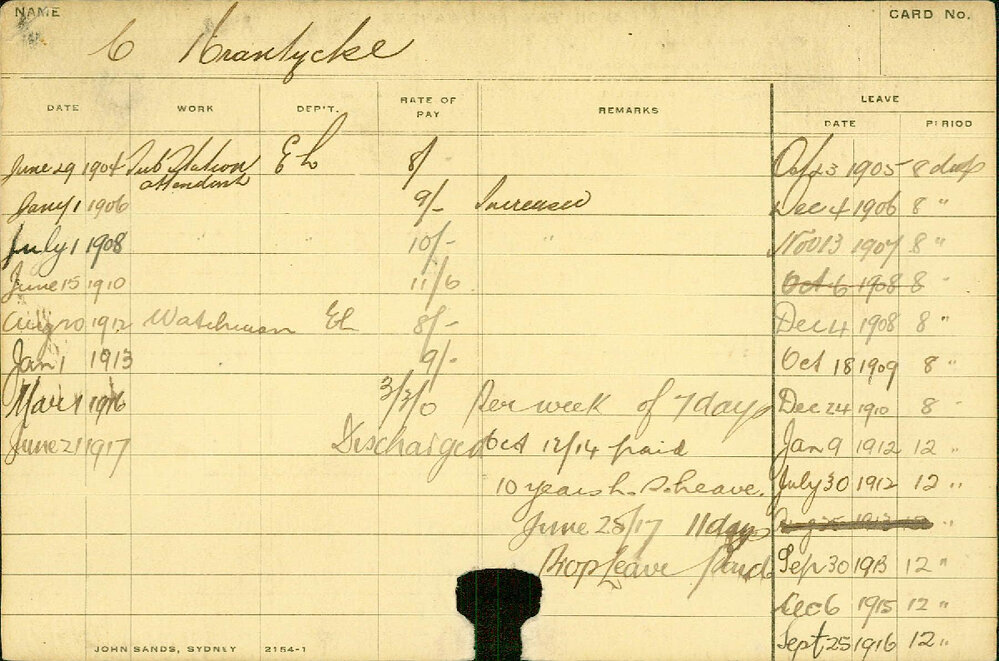 NAME
CARD No.
C Krantycke
DATE WORK DEP'T. RATE OF PAY REMARKS LEAVE
DATE PERIOD
June 29 1904 Sub Station attendant EL 8/- Oct 23 1905 8 days
Jany 1 1906 9/- Increased Dec 4 1906 8 "
July 1 1908 10/- " Nov 13 1907 8 "
June 15 1910 11/6 Oct 6 1908 8 "
Aug 20 1912 Watchman EL 8/- Dec 4 1908 8 "
Jan 1 1913 9/- Oct 18 1909 8 "
Mar 1 1916 3/3/0 Per week of 7 days Dec 24 1910 8 "
June 21 1917 Discharged Oct 12/14 paid Jan 9 1912 12 "
10 years L. S. Leave. July 30 1912 12 "
June 28/17 11 days Aug 25 1913 12 "
Prop Leave Paid Sep 30 1913 12 "
Dec 6 1915 12 "
Sept 25 1916 12 "
JOHN SANDS, SYDNEY 2154-1